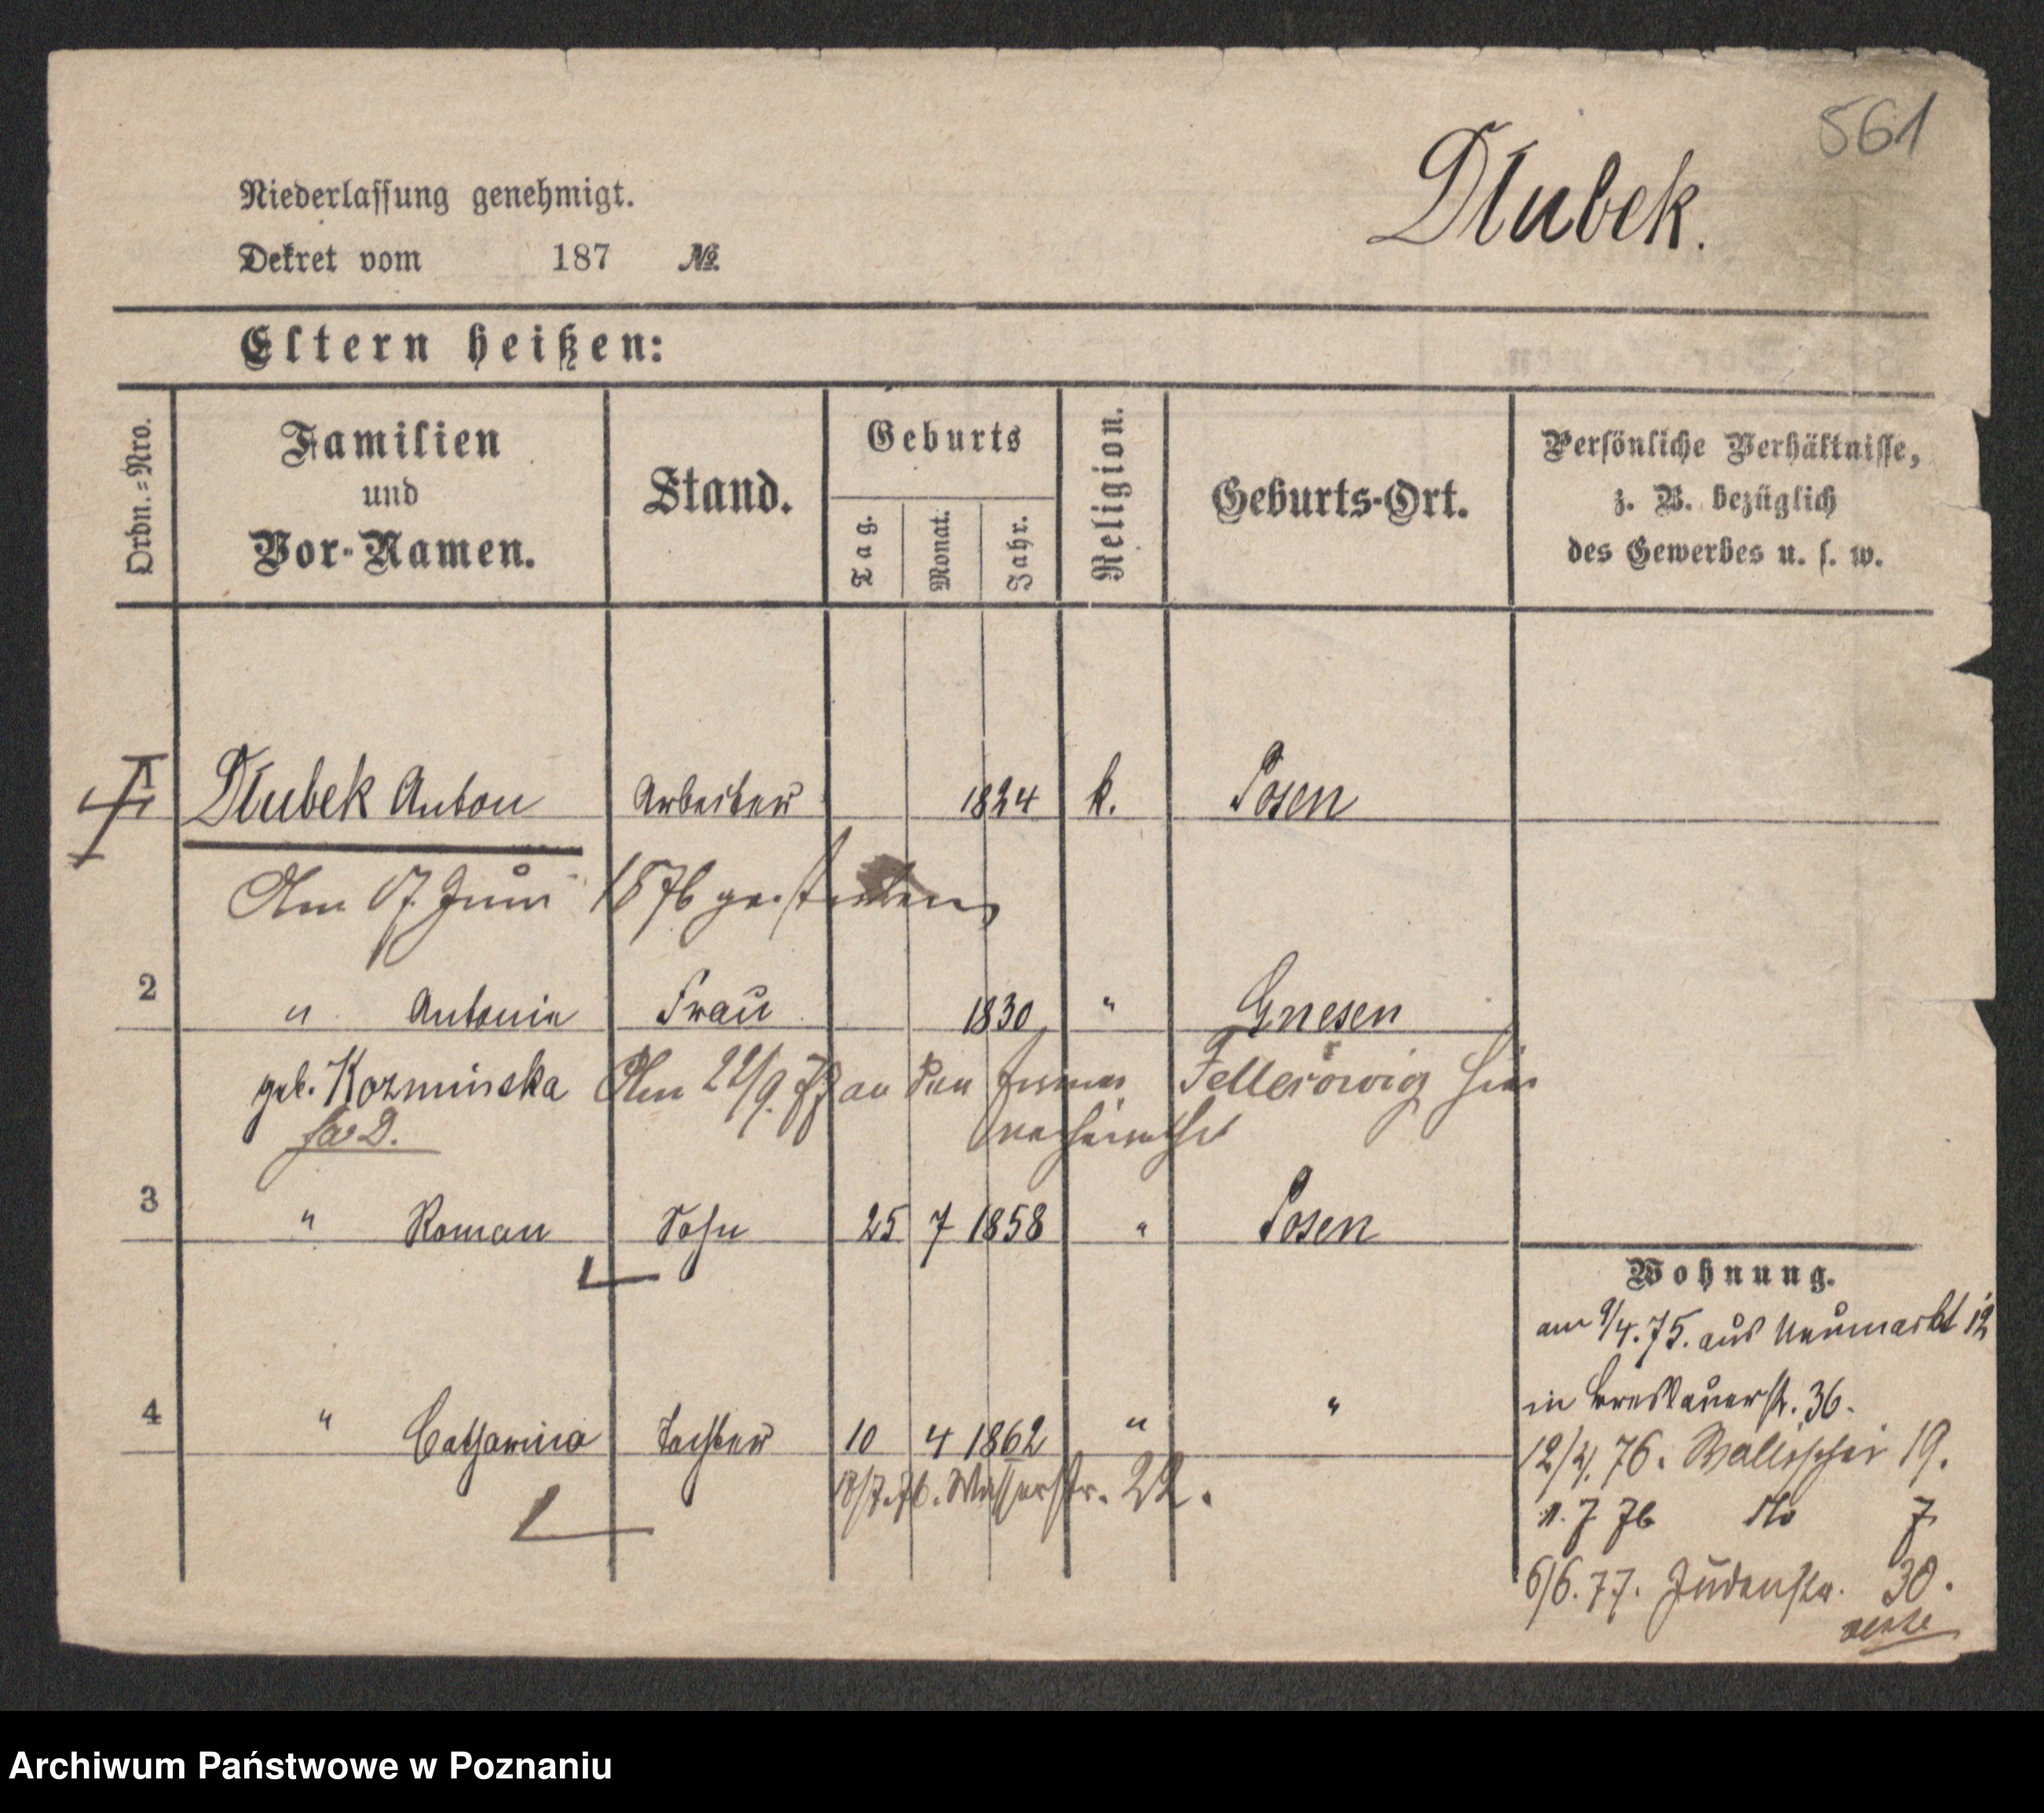 561
Dlubek.
Niederlassung genehmigt.
Dekret vom 187 №.
Eltern heißen:
Ordn.=Nro.
Familien
und
Vor-Namen.
Stand.
Geburts
Tag.
Monat.
Jahr.
Religion.
Geburts-Ort.
Persönliche Verhältnisse,
z. B. bezüglich
des Gewerbes u. s. w.
1 Dlubek Anton Arbeiter 1824 k. Posen
Am 17. Juni 1876 gestorben
2 " Antonie Frau 1830 " Gnesen
geb. Kozminska Am 22/9. 77 an den hier
verheirathet
3 " Roman Sohn 25 7 1858 " Posen
4 " Catharina Tochter 10 4 1862 " "
18/7.76. Wasserstr. 22.
Wohnung.
am 9/4.75. aus Neumarkt 12
in Breslauerstr. 36.
12/4.76. Wallischei 19.
1. 7 76 dto 7
6/6.77. Judenstr. 30.